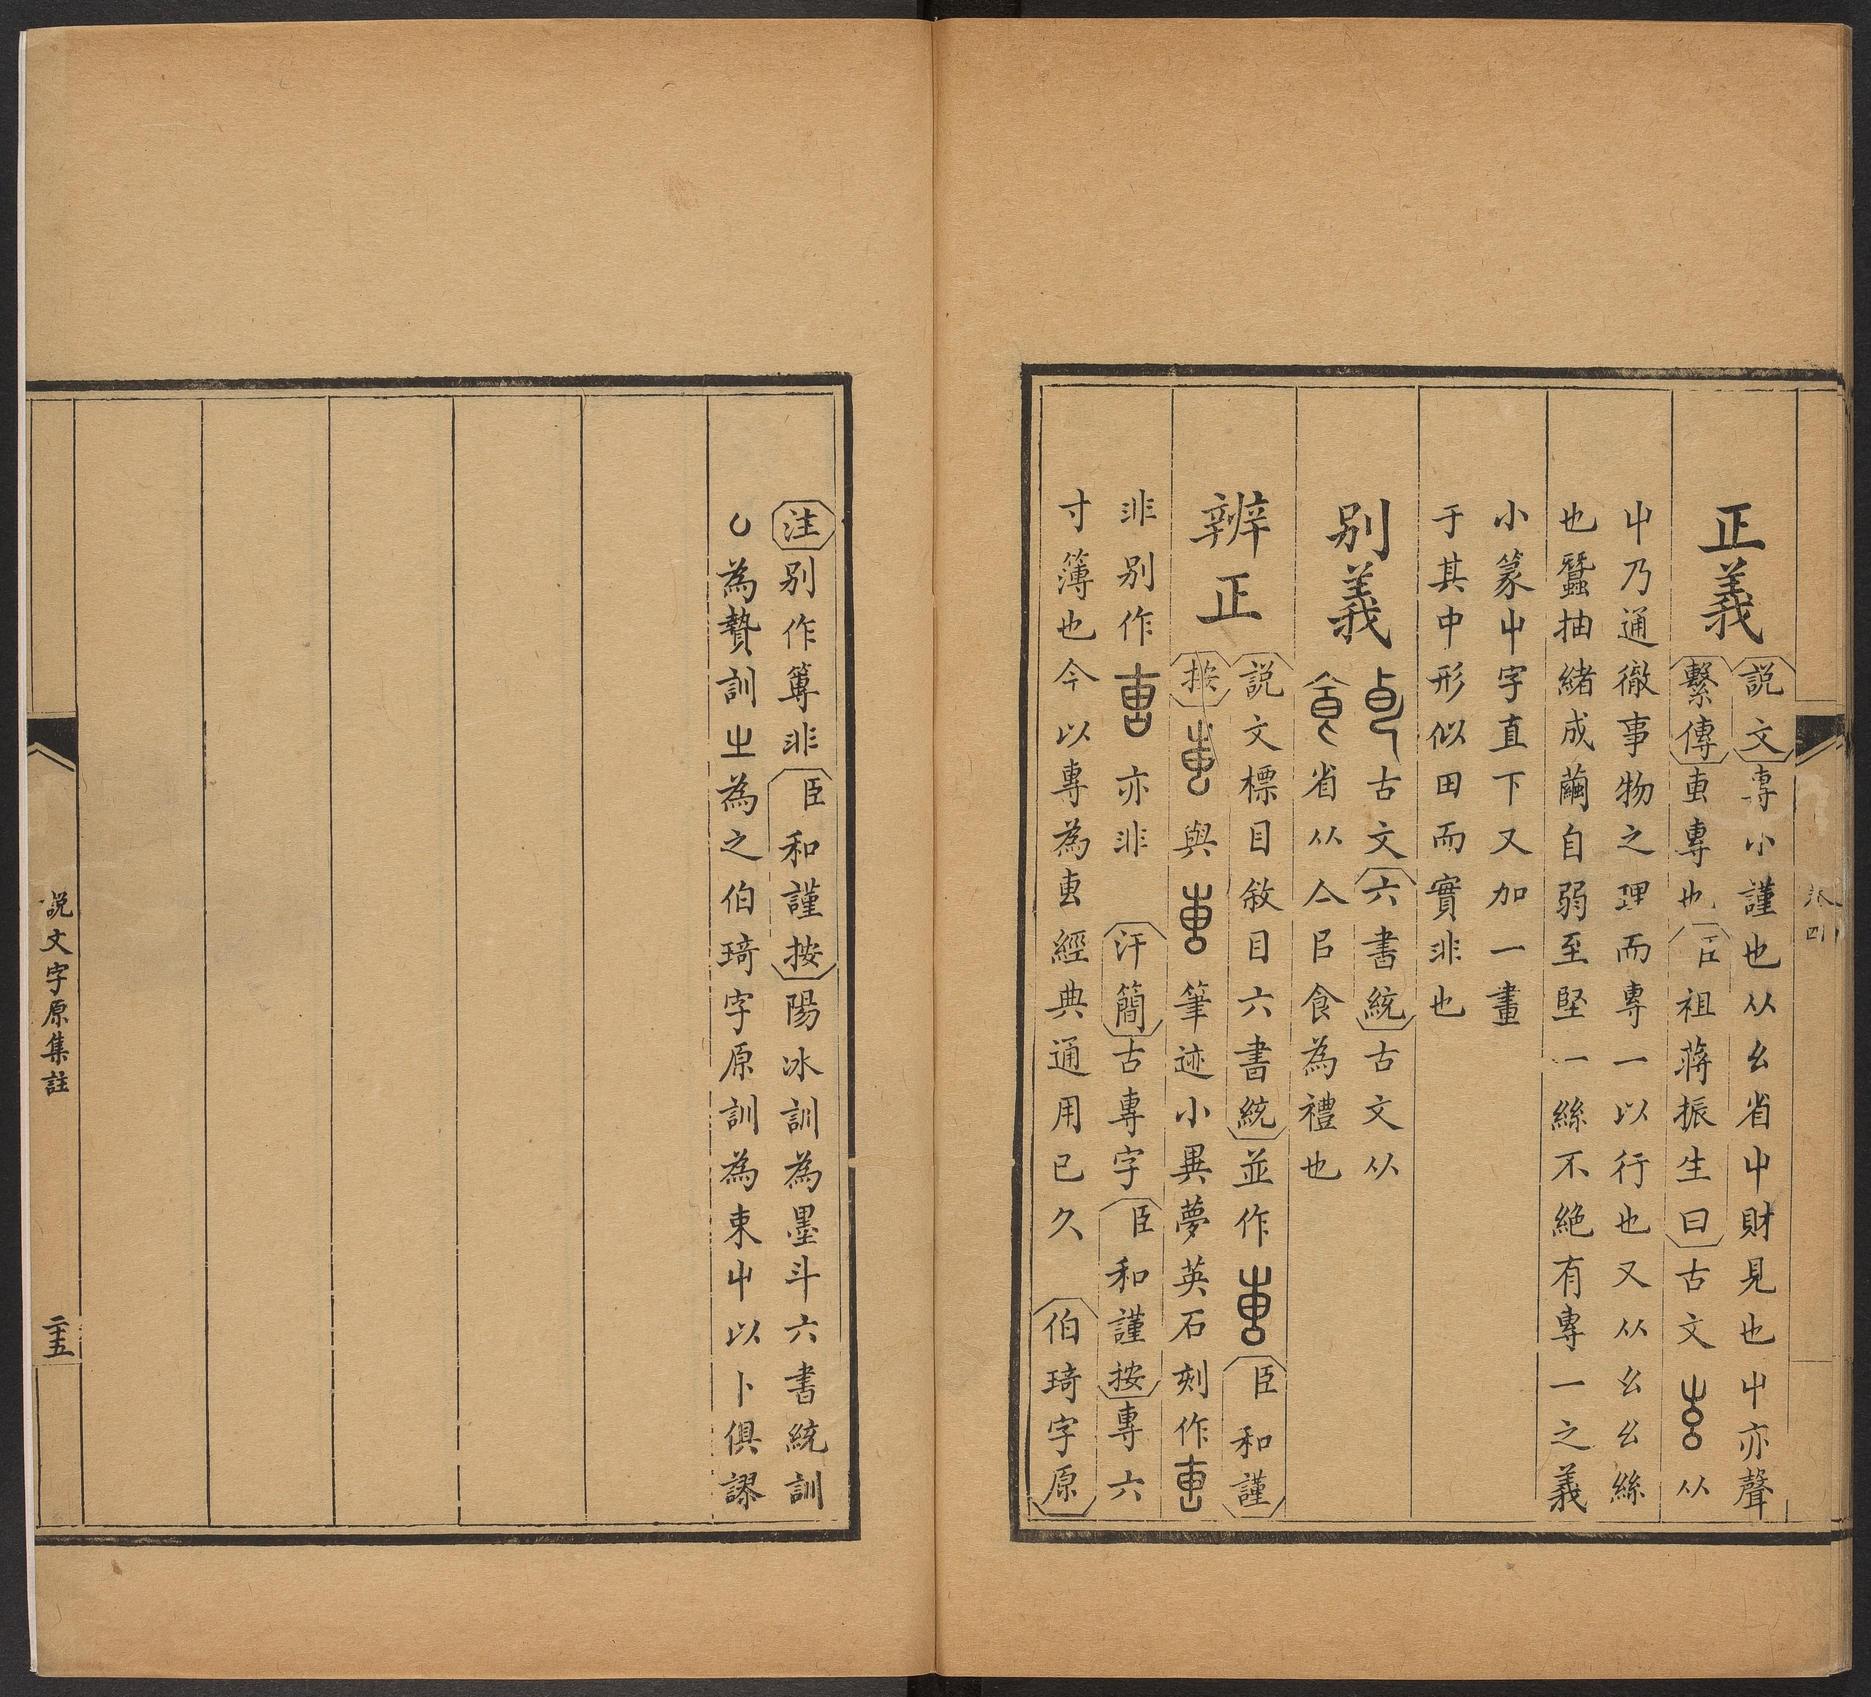 正義
説文專小謹也从幺省屮財見也屮亦聲
繫傳叀專也臣祖蔣振生曰古文 从
屮乃通徹事物之理而專一以行也又从幺幺絲
也蠶抽緒成繭自弱至堅一絲不絕有專一之義
小篆屮字直下又加一畫
于其中形似田而實非也
别義
古文六書統古文从
省从亼㠯食為禮也
辨正
説文標目敘目六書統並作 臣和謹
按 與 筆迹小異夢英石刻作
非别作 亦非 汗簡古專字臣和謹按專六
寸簿也今以專為叀經典通用已久 伯琦字原
注别作篿非臣和謹按陽冰訓為墨斗六書統訓
為贄訓㞢為之伯琦字原訓為東屮以卜俱謬
卷四
説文字原集註
二十五